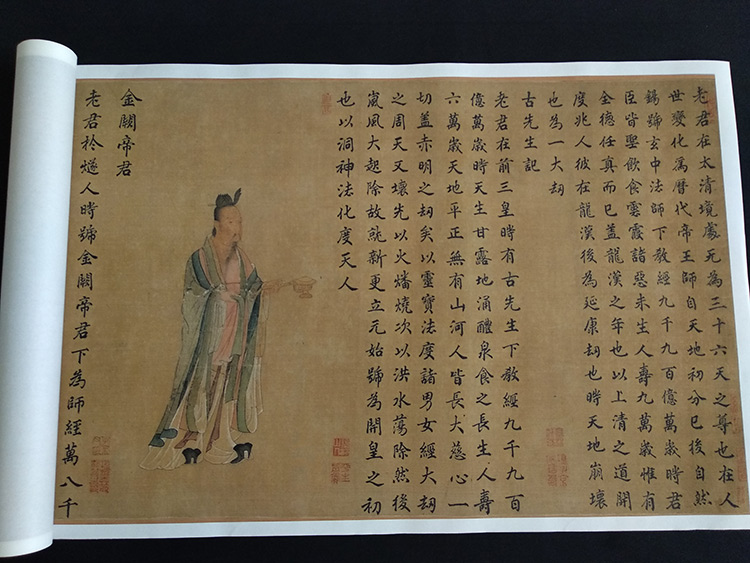 老君在太清境處死為三十六天之尊也在人
世變化為曆代帝王師自天地初分已後自然
錫號玄中法師下教經九千九百億萬歲時君
臣皆墾飲食雲霞諸惡未生人壽九萬歲惟有
全德任真而已蓋龍漢之年也以上清之道開
度兆人彼在龍漢後為延康劫也時天地崩壞
也為一大劫
古先生記
老君在前三皇時有古先生下教經九千九百
億萬歲時天生甘露地涌醴泉食之長生人壽
六萬歲天地平正無有山河人皆長大慈心一
切蓋赤明之劫矣以靈寶法度諸男女經大劫
之周天又壞先以火燔燒次以洪水蕩除然後
嵐風大起除故就新更立元始號為開皇之初
也以洞神法化度天人
金闕帝君
老君於燧人時號金闕帝君下為師經萬八千